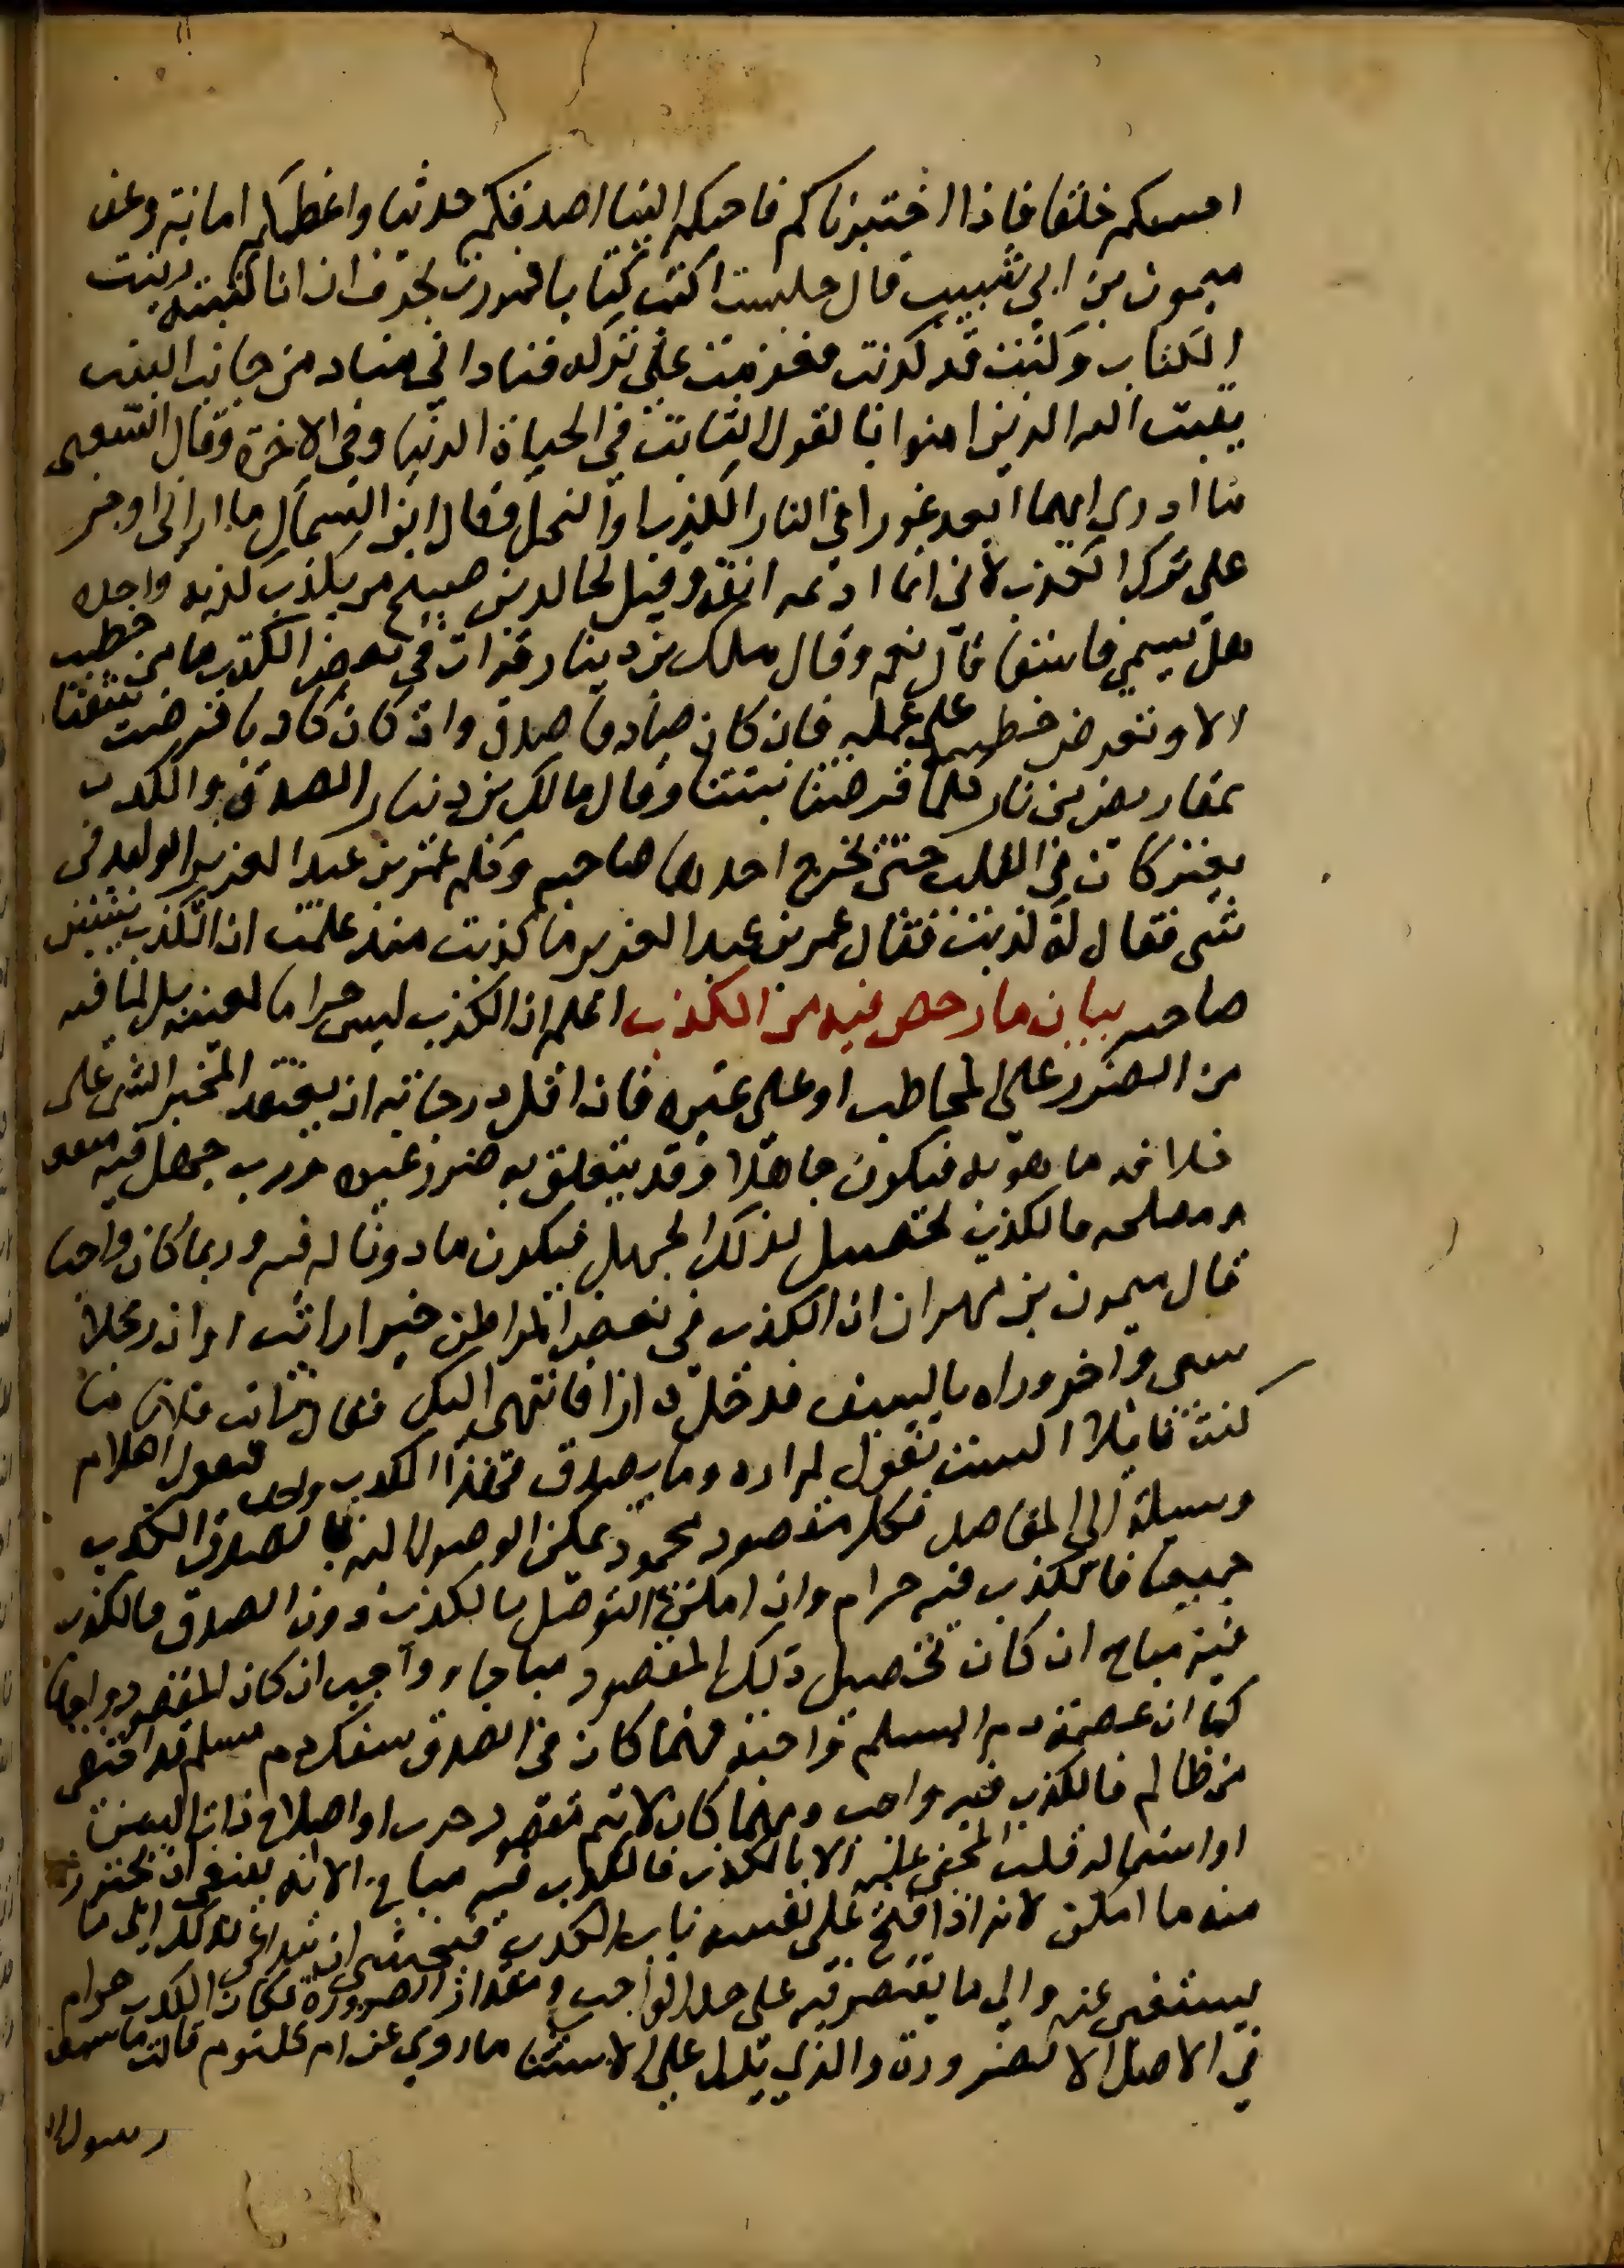 احسنكم خلقا فاذا اختبرناكم فاحبكم الينا اصدقكم حديثا واعظمكم امانة وعن
ميمون بن ابي شبيب قال جلست اكتب كتابا فمررت بحرف ان انا كتبته زينت
الكتاب وكنت قد كذبت فعزمت على تركه فنادانى مناد من جانب البيت
يثبت الله الذين امنوا بالقول الثابت في الحياة الدنيا وفي الاخرة وقال الشعبى
ما ادري ايهما ابعد غورا في النار الكذب او البخل وقال ابن السماك ما ارانى اوجر
على ترك الكذب لاني انما ادعه انفة وقيل لخالد بن صبيح من يكذب كذبة واحدة
هل يسمي فاسقا قال نعم وقال مالك بن دينار قرات في بعض الكتب ما من خطيب
الا وتعرض خطبته على عمله فان كان صادقا صدق وان كان كاذبا قرضت شفتاه
بمقاريض من نار كلما قرضتا نبتتا وقال مالك بن دينار الصدق والكذب
يعتركان في القلب حتى يخرج احدهما صاحبه وكلم عمر بن عبد العزيز الوليد في
شى فقال له كذبت فقال عمر بن عبد العزيز ما كذبت منذ علمت ان الكذب يشين
صاحبه بيان ما رخص فيه من الكذب اعلم ان الكذب ليس حراما لعينه بل لما فيه
من الضرر على المخاطب او على غيره فان اقل درجاته ان يعتقد المخبر الشى على
خلاف ما هو به فيكون جاهلا وقد يتعلق به ضرر غيره ورب جهل فيه منفعة
ومصلحه فالكذب تحصيل لذلك الجهل فيكون ماذونا له فيه وربما كان واجبا
قال ميمون بن مهران ان الكذب في بعض المواطن خير ارايت لو ان رجلا
سعى واخر وراه بالسيف فدخل دارا فانتهى اليك فقال رايت فلانا ما
كنت قائلا الست تقول لم اره وما يصدق فهذا الكذب واجب فنقول الكلام
وسيلة الى المقاصد فكل مقصود محمود يمكن الوصول اليه بالصدق والكذب
جميعا فالكذب فيه حرام وان امكن التوصل بالكذب دون الصدق فالكذب
فيه مباح ان كان تحصيل ذلك المقصود مباحا وواجب ان كان المقصود واجبا
كما ان عصمة دم المسلم واجبة فمهما كان في الصدق سفك دم مسلم قد اختفى
من ظالم فالكذب فيه واجب ومهما كان لا يتم مقصود حرب او اصلاح ذات البين
او استمالة قلب المجني عليه الا بالكذب فالكذب فيه مباح الا انه ينبغى ان يحترز
منه ما امكن لانه اذا فتح على نفسه باب الكذب فيخشى ان يتداعى كذلك الى ما
يستغنى عنه والى ما يقتصر فيه على حد الواجب ومقدار الضرورة فكان الكذب حرام
في الاصل الا لضرورة والذي يدل على الاستثنا ما روي عن ام كلثوم قالت ما سمعت
رسول الله